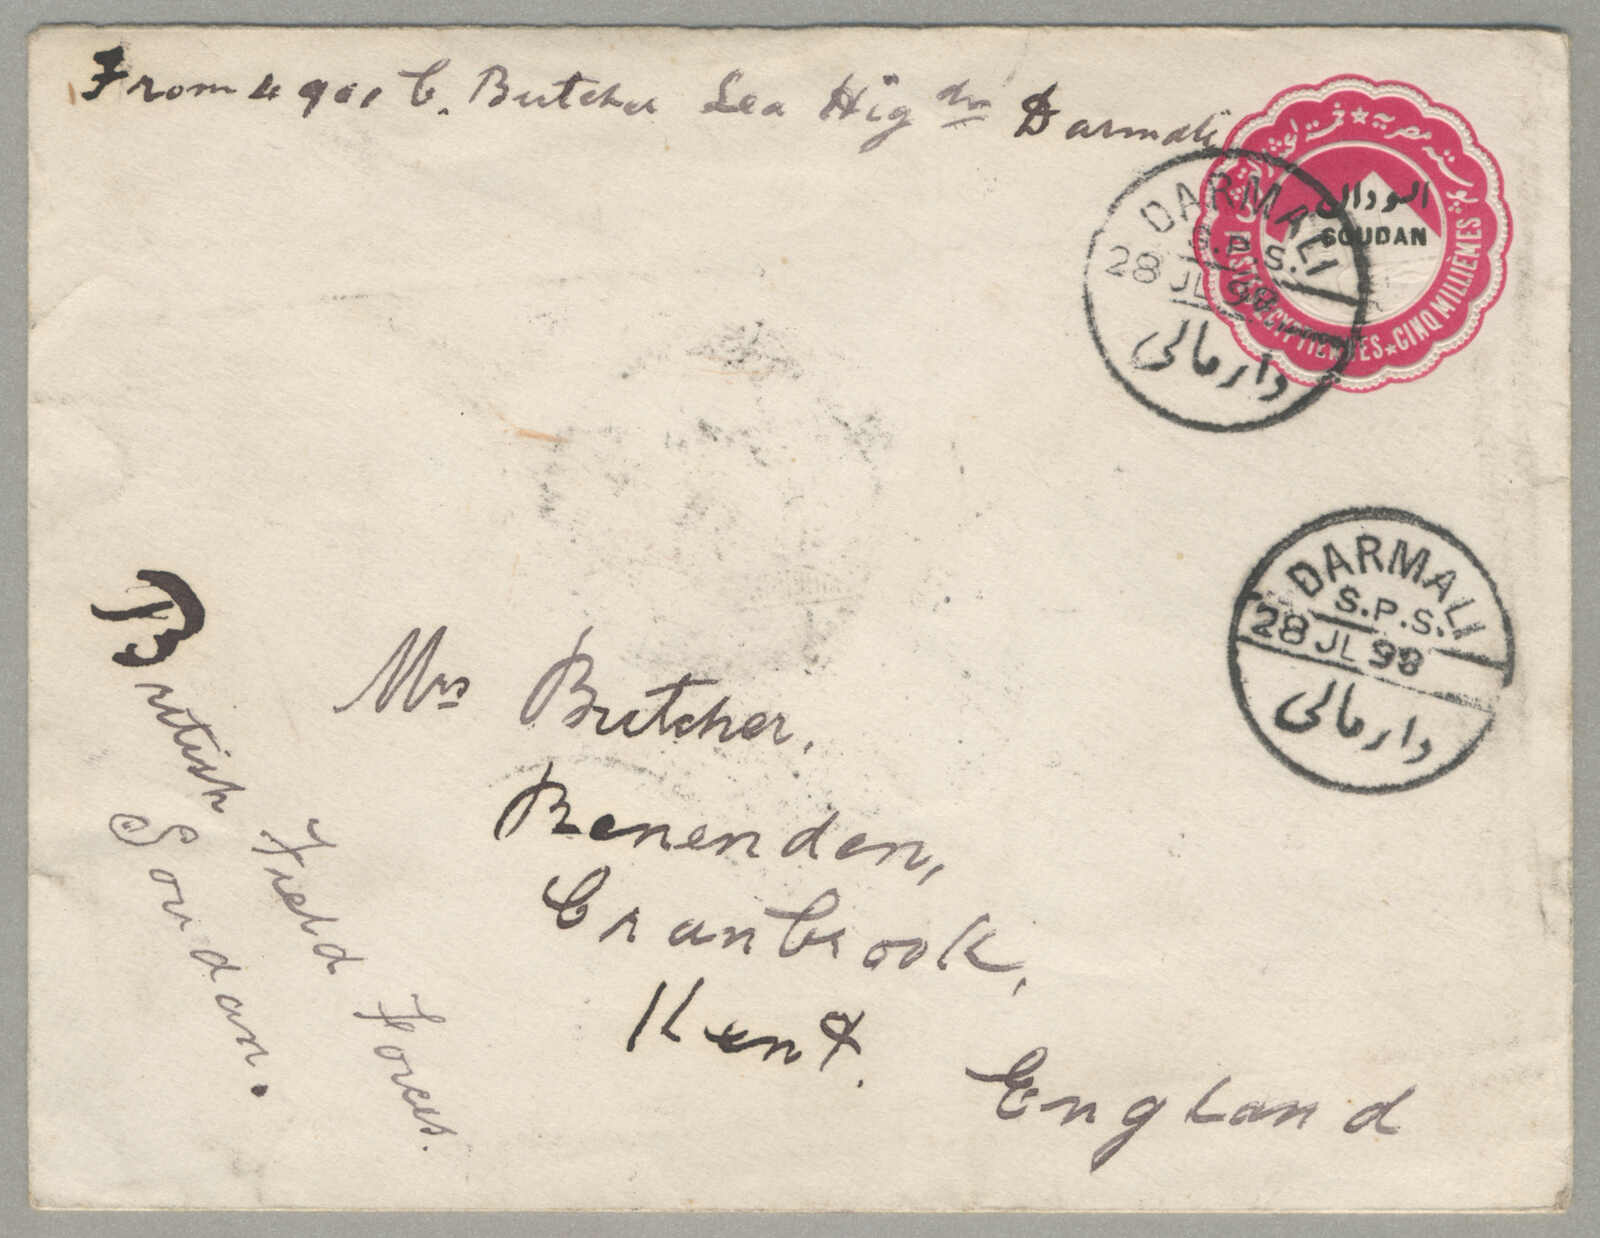 From 4901 C. Butcher Sea Hig drs Darmali
بوستة مصرية
السودان
SOUDAN
POSTES EGYPTIENNES ★ CINQ MILLIÈMES
DARMALI
S.P.S.
28 JL 98
دارمالى
DARMALI
S.P.S.
28 JL 98
دارمالى
Mrs Butcher,
Benenden,
Cranbrook,
Kent.
England
British Field Forces.
Soudan.